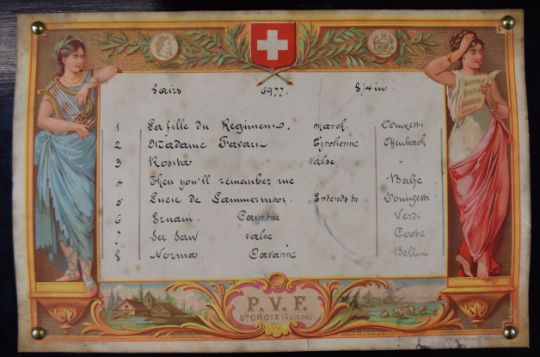 8 airs 6977. 8¼ in
1 La fille du Regiment. March. Donizetti
2 Madame Favart Tyrolienne Offenbach
3 Rosita Valse "
4 Then you'll remember me Balfe
5 Lucie de Lammermoor. Entends tu Donizetti
6 Ernani. Cavatine Verdi
7 See Saw Valse Coote
8 Norma. Cavatine Bellini
P. V. F.
Ste CROIX (Suisse)